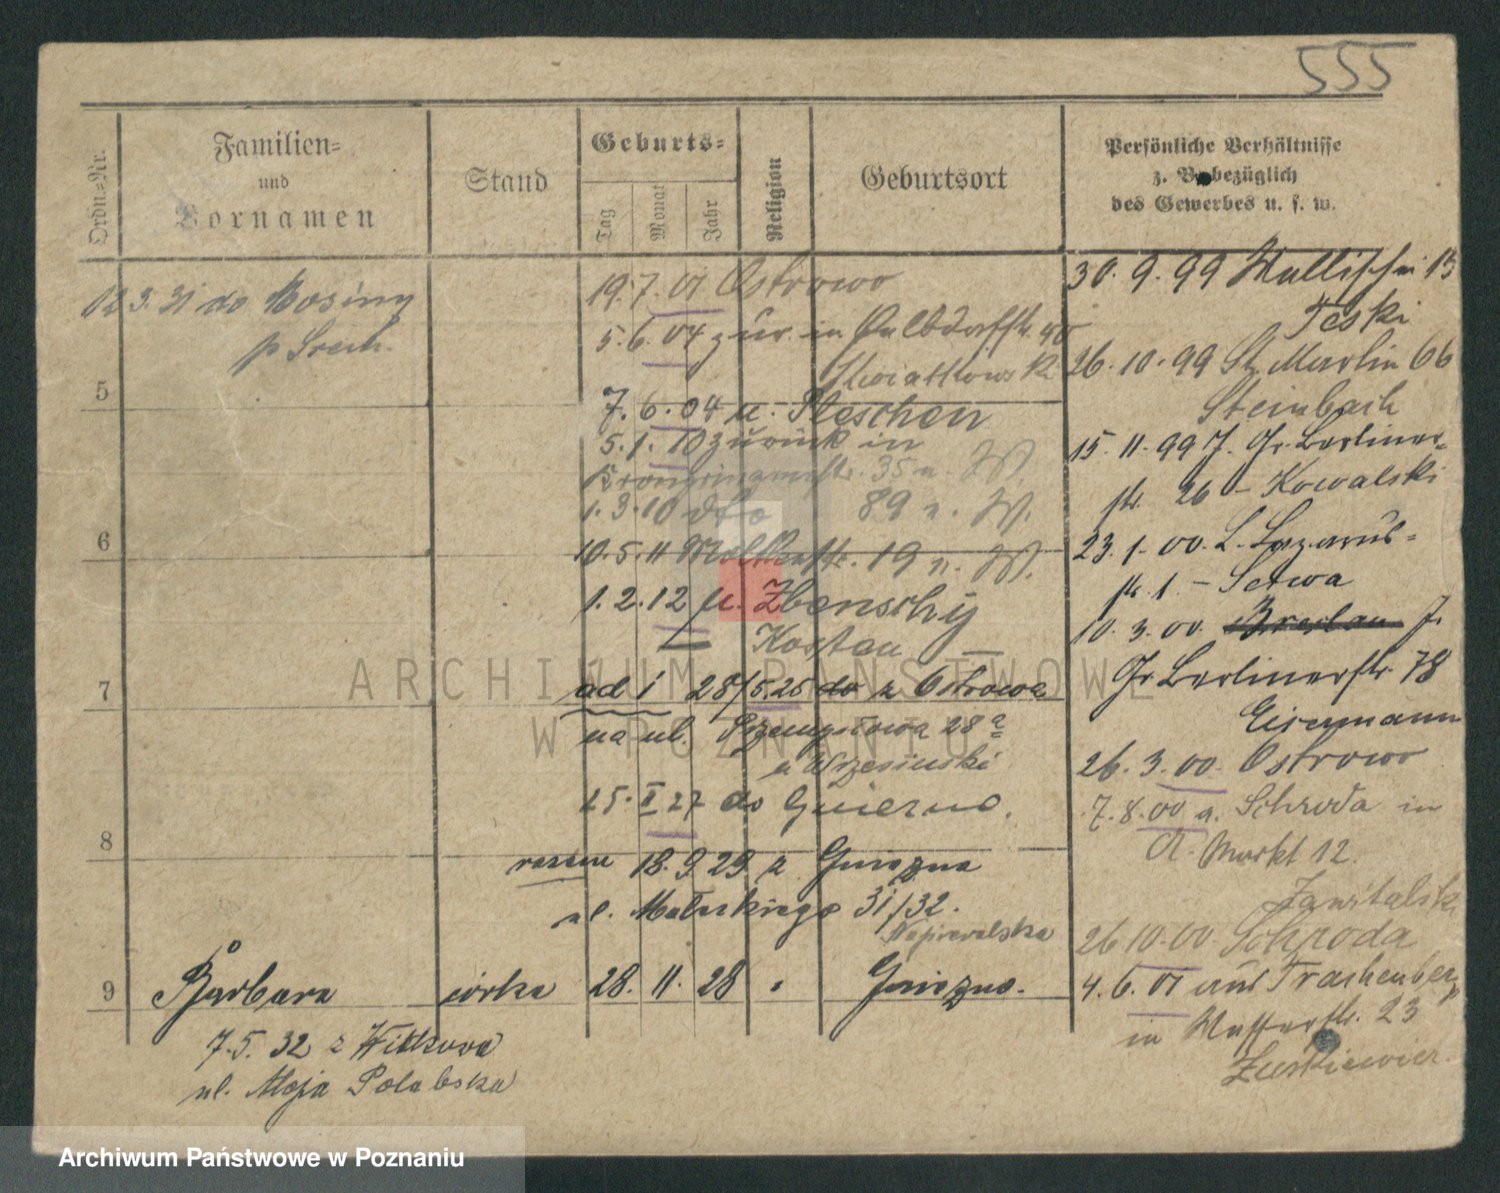 555
Ordn=Nr.
Familien=
und
Vornamen
Stand
Geburts=
Tag
Monat
Jahr
Religion
Geburtsort
Persönliche Verhältnisse
z. B. bezüglich
des Gewerbes u. s. w.
12 3. 31 do Mosiny
p Srem.
5
6
7
8
19. 7. 01 Ostrowo
5. 6. 04 zur. in 40
Kwiatkowsk
7. 6. 04 u. Pleschen
5. 1. 10 zurück in
Kronprinzenstr. 35 n. W.
1. 3. 10 dto 89 n. W.
10. 5. 11 Moltkestr. 19 n. W.
1. 2. 12 u. Zbonschy
Kosten
ad 1 28/5.25 do z Ostrowa
na ul. Przemysłowa 28a
u Wrzesiński
15. II 27 do Gniezno.
razem 18. 9 29 z Gniezna
ul. Małeckiego 31/32.
Napieralska
9 Barbara córka 28. 11. 28 " Gniezno.
7. 5. 32 z Witkowa
ul. Moja Polabska
30. 9. 99 Wallischei 15
Teski
26. 10. 99 St. Martin 66
Steinbach
15. 11. 99 J. Gr. Berliner=
str. 26 - Kowalski
23. 1. 00. L. Lazarus=
str. 1 - Setwa
10. 3. 00. Breslau J.
Gr. Berlinerstr. 78
Eisermann
26. 3. 00 Ostrowo
7. 8. 00 a. Schroda in
A. Markt 12.
Zawitalsk
26 10. 00 Schroda
4. 6. 01 aus Trachenberg
in Wasserstr. 23
Zurkiewicz
ARCHIWUM PAŃSTWOWE
W POZNANIU
Archiwum Państwowe w Poznaniu